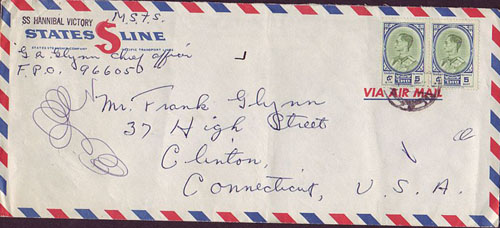 SS HANNIBAL VICTORY M.S.T.S.
STATES S LINE
STATES STEAMSHIP COMPANY PACIFIC TRANSPORT LINES
G.A. Glynn chief officer
F.P.O. 966050
5 5
VIA AIR MAIL
Mr. Frank Glynn
37 High Street
Clinton,
Connecticut, U.S.A.